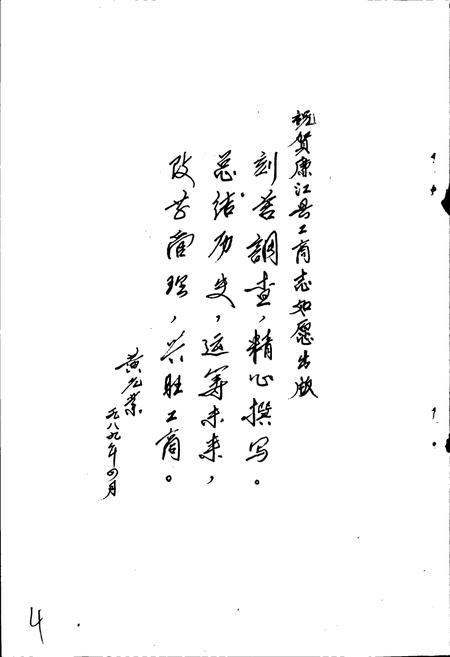 祝贺廉江县工商志如愿出版
刻苦調查，精心撰写。
总结历史，运筹未来，
改善管理，兴旺工商。
黄
一九八九年四月
4